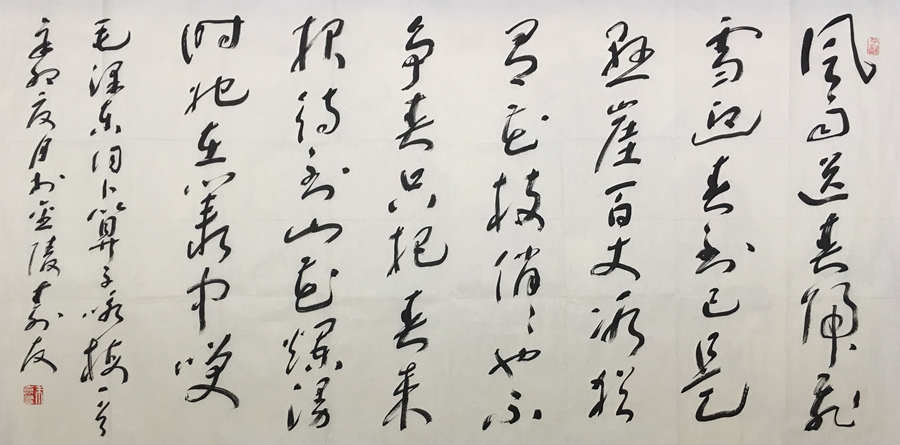 風雨送春歸飛
雪迎春到已是
懸崖百丈冰猶
有花枝俏々也不
爭春只把春來
報待到山花爛漫
时她在叢中笑
毛澤東詞卜算子咏梅一首
辛卯夏月於金陵友